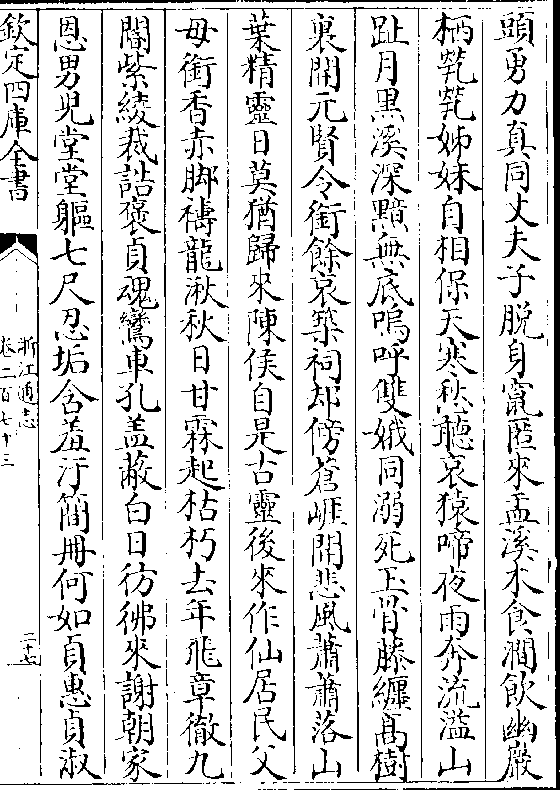 頭勇力真同丈夫子脫身竄匿來盂溪木食澗飲幽巖
栖煢煢姊妹自相保天寒愁聽哀猿啼夜雨奔流溢山
趾月黒溪深黯無底嗚呼雙娥同溺死玉骨藤纒髙樹
裏開元賢令銜餘哀築祠却傍蒼崖開悲風蕭蕭落山
葉精靈日莫猶歸來陳侯自是古靈後來作仙居民父
母銜香赤脚禱龍湫秋日甘霖起枯朽去年飛章徹九
閽紫綾裁誥褒貞魂鸞車孔盖蔽白日彷彿來謝朝家
恩男兒堂堂軀七尺忍垢含羞汙簡冊何如貞惠貞淑
欽定四庫全書
浙江通志
卷二百七十三
二十七